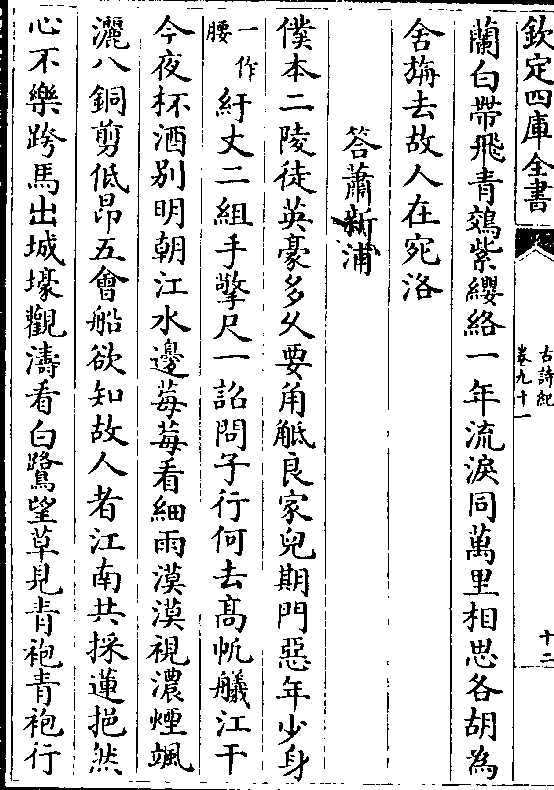 欽定四庫全書
古詩紀
卷九十一
十二
蘭白帶飛青鵁紫纓絡一年流淚同萬里相思各胡為
舍旃去故人在宛洛
答蕭新浦
僕本二陵徒英豪多久要角觝良家兒期門惡年少身
一作
腰
紆丈二組手擎尺一詔問子行何去髙帆艤江干
今夜杯酒別明朝江水邊莓莓看細雨漠漠視濃煙颯
灑八銅剪低昻五會船欲知故人者江南共採蓮挹然
心不樂跨馬出城壕觀濤看白鷺望草見青袍青袍行